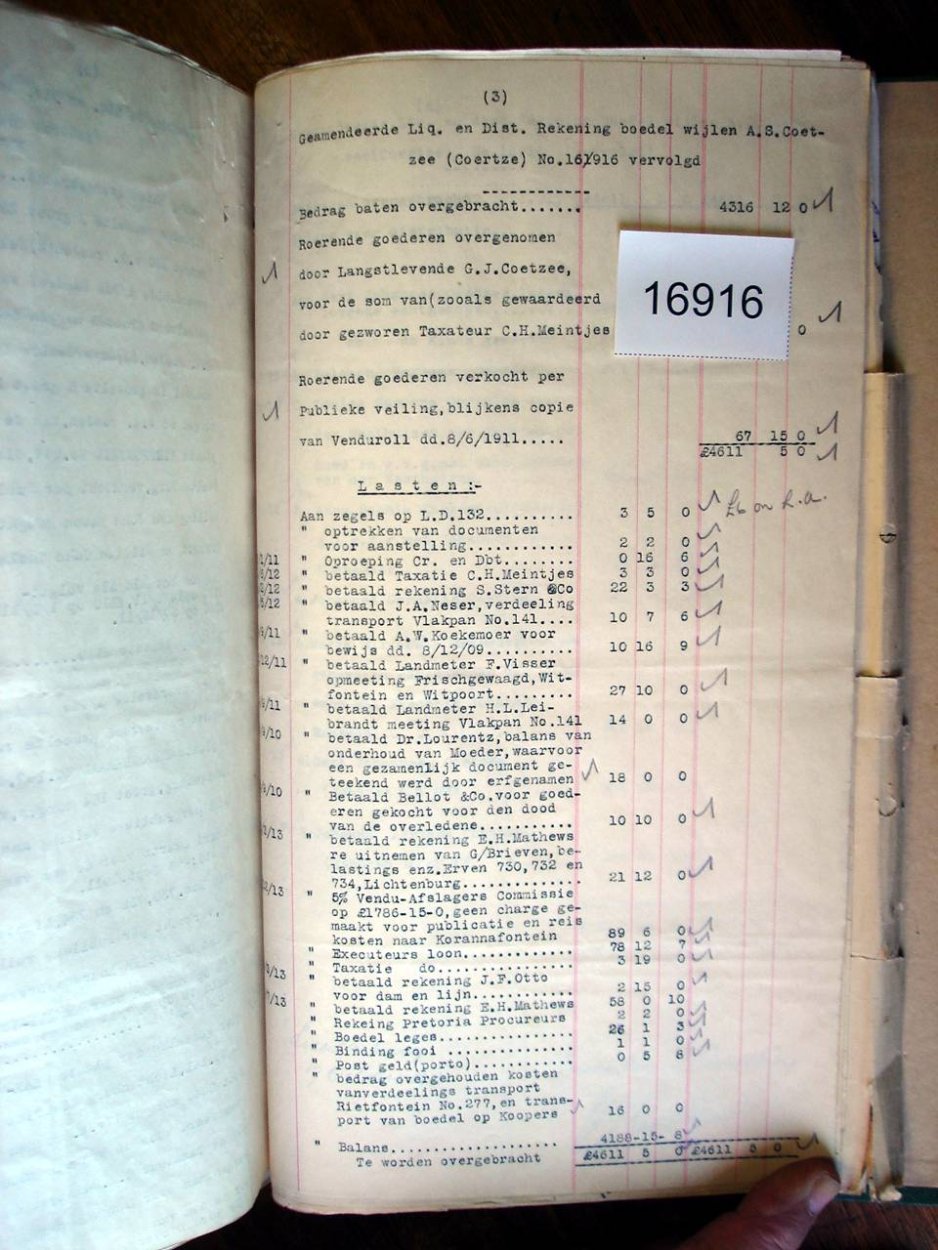 (3)
Geamendeerde Liq. en Dist. Rekening boedel wijlen A.S.Coet-
zee (Coertze) No.16/916 vervolgd
Bedrag baten overgebracht....... 4316 12 0
Roerende goederen overgenomen
door Langstlevende G.J.Coetzee,
voor de som van(zooals gewaardeerd
door gezworen Taxateur C.H.Meintjes 0
16916
Roerende goederen verkocht per
Publieke veiling,blijkens copie
van Venduroll dd.8/6/1911..... 67 15 0
£4611 5 0
Lasten:-
Aan zegels op L.D.132.......... 3 5 0 £6 on L.a.
" optrekken van documenten
voor aanstelling............ 2 2 0
1/11 " Oproeping Cr. en Dbt........ 0 16 6
/12 " betaald Taxatie C.H.Meintjes 3 3 0
/12 " betaald rekening S.Stern &Co 22 3 3
/12 " betaald J.A.Neser,verdeeling
transport Vlakpan No.141.... 10 7 6
/11 " betaald A.W.Koekemoer voor
bewijs dd. 8/12/09.......... 10 16 9
12/11 " betaald Landmeter F.Visser
opmeeting Frischgewaagd,Wit-
fontein en Witpoort......... 27 10 0
/11 " betaald Landmeter H.L.Lei-
brandt meeting Vlakpan No.141 14 0 0
/10 " betaald Dr.Lourentz,balans van
onderhoud van Moeder,waarvoor
een gezamenlijk document ge-
teekend werd door erfgenamen 18 0 0
/10 " Betaald Bellot &Co.voor goed-
eren gekocht voor den dood
van de overledene........... 10 10 0
/13 " betaald rekening E.H.Mathews
re uitnemen van G/Brieven,be-
lastings enz.Erven 730,732 en
734,Lichtenburg............. 21 12 0
/13 " 5% Vendu-Afslagers Commissie
op £1786-15-0,geen charge ge-
maakt voor publicatie en reis
kosten naar Korannafontein 89 6 0
" Executeurs loon............. 78 12 7
" Taxatie do............... 3 19 0
/13 " betaald rekening J.F.Otto
voor dam en lijn............ 2 15 0
/13 " betaald rekening E.H.Mathews 58 0 10
" Rekeing Pretoria Procureurs 2 2 0
" Boedel leges................ 26 1 3
" Binding fooi ............... 1 1 0
" Post geld(porto)............ 0 5 8
" bedrag overgehouden kosten
vanverdeelings transport
Rietfontein No.277,en trans-
port van boedel op Koopers 16 0 0
" Balans.................... 4188-15- 8
Te worden overgebracht £4611 5 0 £4611 5 0